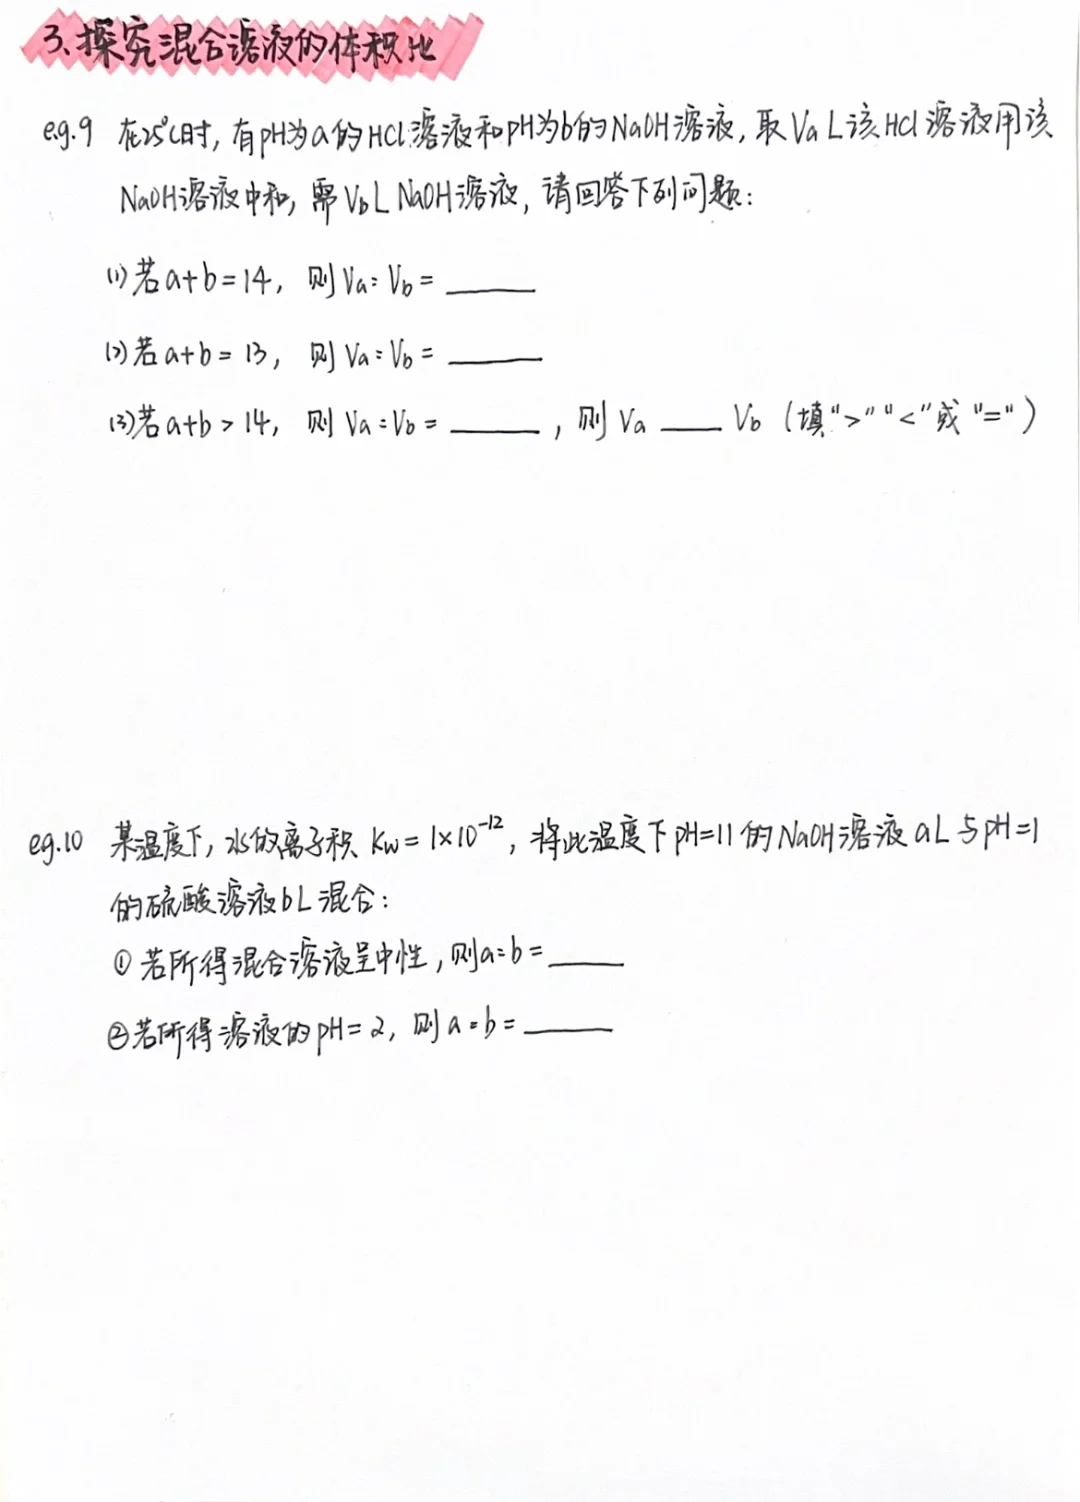 3、探究混合溶液的体积比
e.g.9 在25℃时,有pH为a的HCl溶液和pH为b的NaOH溶液,取Va L该HCl溶液用该
NaOH溶液中和,需Vb L NaOH溶液,请回答下列问题:
(1)若a+b=14, 则Va:Vb=______
(2)若a+b=13, 则Va:Vb=______
(3)若a+b>14, 则Va:Vb=______,则Va____Vb(填">""<"或"=")
eg.10 某温度下,水的离子积Kw=1×10⁻¹²,将此温度下pH=11的NaOH溶液aL与pH=1
的硫酸溶液bL混合:
①若所得混合溶液呈中性,则a:b=_____
②若所得溶液的pH=2,则a:b=______